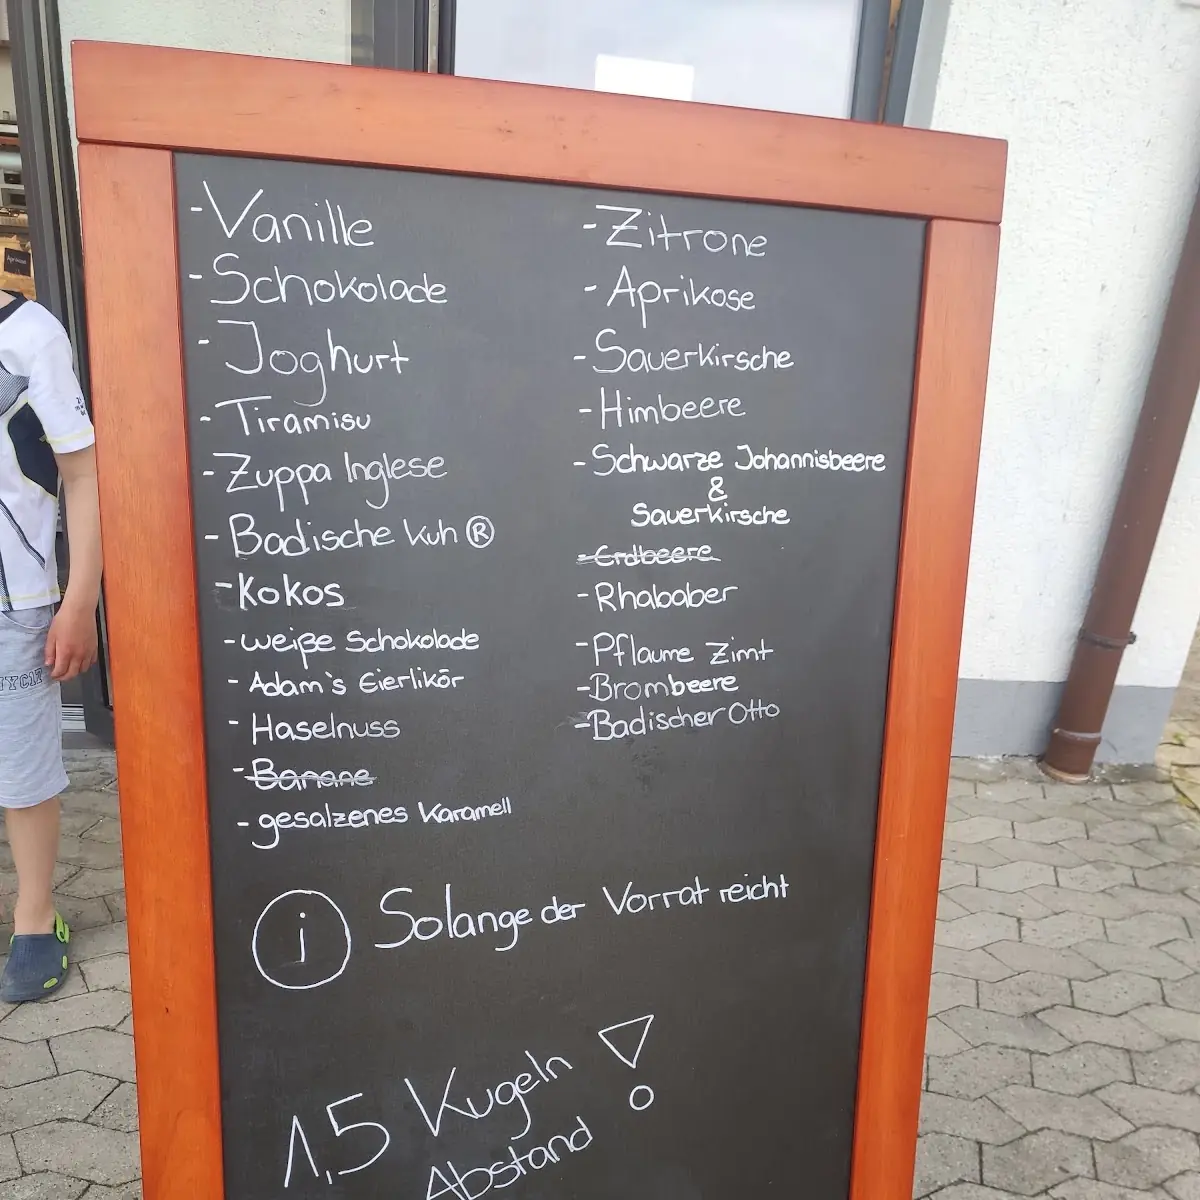 - Vanille
- Schokolade
- Joghurt
- Tiramisu
- Zuppa Inglese
- Badische Kuh ®
- Kokos
- weiße Schokolade
- Adam's Eierlikör
- Haselnuss
- Banane
- gesalzenes Karamell
- Zitrone
- Aprikose
- Sauerkirsche
- Himbeere
- Schwarze Johannisbeere
&
Sauerkirsche
- Erdbeere
- Rhababer
- Pflaume Zimt
- Brombeere
- Badischer Otto
i Solange der Vorrat reicht
1,5 Kugeln
Abstand !